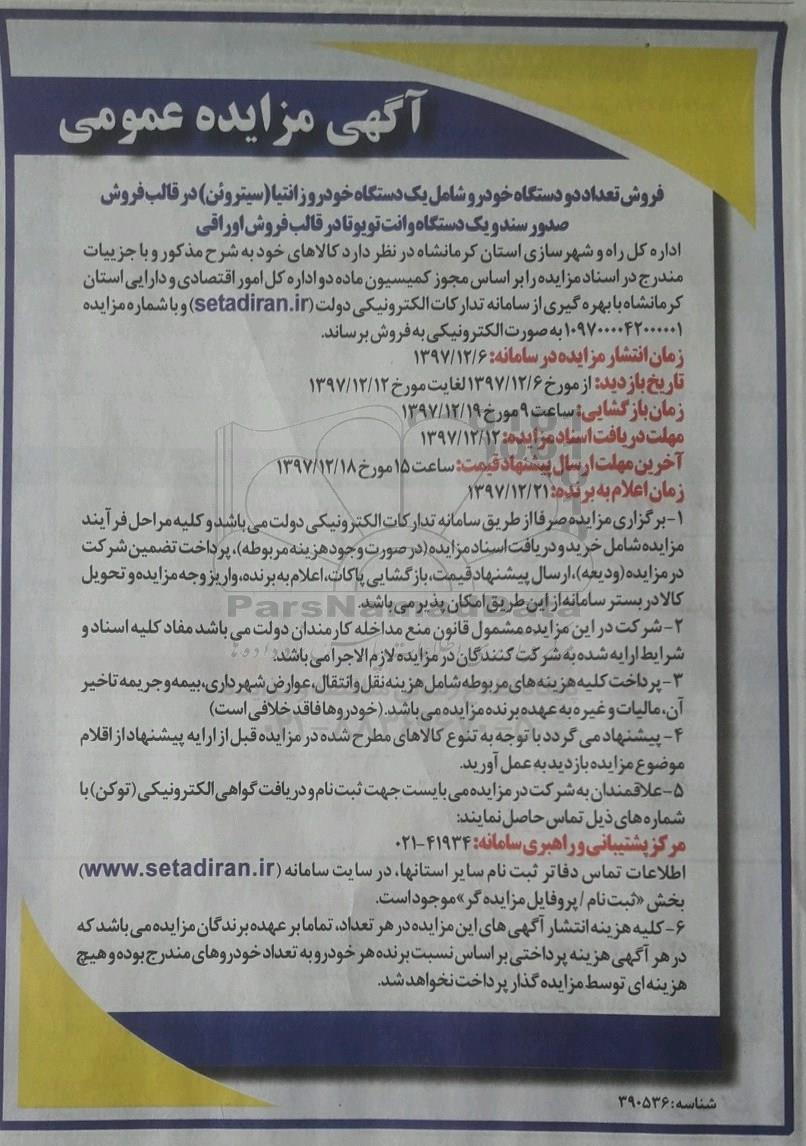 آگهی مزایده عمومی
فروش تعداد دو دستگاه خودرو شامل یک دستگاه خودرو زانتیا (سیتروئن) در قالب فروش
صدور سند و یک دستگاه وانت تویوتا در قالب فروش اوراقی
اداره کل راه و شهرسازی استان کرمانشاه در نظر دارد کالاهای خود به شرح مذکور و با جزییات
مندرج در اسناد مزایده را بر اساس مجوز کمیسیون ماده دو اداره کل امور اقتصادی و دارایی استان
کرمانشاه با بهره گیری از سامانه تدارکات الکترونیکی دولت (setadiran.ir) و با شماره مزایده
۱۰۹۷۰۰۰۰۴۲۰۰۰۰۰۱ به صورت الکترونیکی به فروش برساند.
زمان انتشار مزایده در سامانه: ۱۳۹۷/۱۲/۶
تاریخ بازدید: از مورخ ۱۳۹۷/۱۲/۶ لغایت مورخ ۱۳۹۷/۱۲/۱۲
زمان بازگشایی: ساعت ۹ مورخ ۱۳۹۷/۱۲/۱۹
مهلت دریافت اسناد مزایده: ۱۳۹۷/۱۲/۱۲
آخرین مهلت ارسال پیشنهاد قیمت: ساعت ۱۵ مورخ ۱۳۹۷/۱۲/۱۸
زمان اعلام به برنده: ۱۳۹۷/۱۲/۲۱
۱- برگزاری مزایده صرفا از طریق سامانه تدارکات الکترونیکی دولت می باشد و کلیه مراحل فرآیند
مزایده شامل خرید و دریافت اسناد مزایده (در صورت وجود هزینه مربوطه)، پرداخت تضمین شرکت
در مزایده (ودیعه)، ارسال پیشنهاد قیمت، بازگشایی پاکات، اعلام به برنده، واریز وجه مزایده و تحویل
کالا در بستر سامانه از این طریق امکان پذیر می باشد.
ParsNamadData
۲- شرکت در این مزایده مشمول قانون منع مداخله کارمندان دولت می باشد مفاد کلیه اسناد و
شرایط ارایه شده به شرکت کنندگان در مزایده لازم الاجرا می باشد.
۳- پرداخت کلیه هزینه های مربوطه شامل هزینه نقل و انتقال، عوارض شهرداری، بیمه و جریمه تاخیر
آن، مالیات و غیره به عهده برنده مزایده می باشد. (خودروها فاقد خلافی است)
۴- پیشنهاد می گردد با توجه به تنوع کالاهای مطرح شده در مزایده قبل از ارایه پیشنهاد از اقلام
موضوع مزایده بازدید به عمل آورید.
۵- علاقمندان به شرکت در مزایده می بایست جهت ثبت نام و دریافت گواهی الکترونیکی (توکن) با
شماره های ذیل تماس حاصل نمایند:
مرکز پشتیبانی و راهبری سامانه: ۴۱۹۳۴-۰۲۱
اطلاعات تماس دفاتر ثبت نام سایر استانها، در سایت سامانه (www.setadiran.ir)
بخش «ثبت نام / پروفایل مزایده گر» موجود است.
۶- کلیه هزینه انتشار آگهی های این مزایده در هر تعداد، تماما بر عهده برندگان مزایده می باشد که
در هر آگهی هزینه پرداختی بر اساس نسبت برنده هر خودرو به تعداد خودروهای مندرج بوده و هیچ
هزینه ای توسط مزایده گذار پرداخت نخواهد شد.
شناسه: ۳۹۰۵۳۶